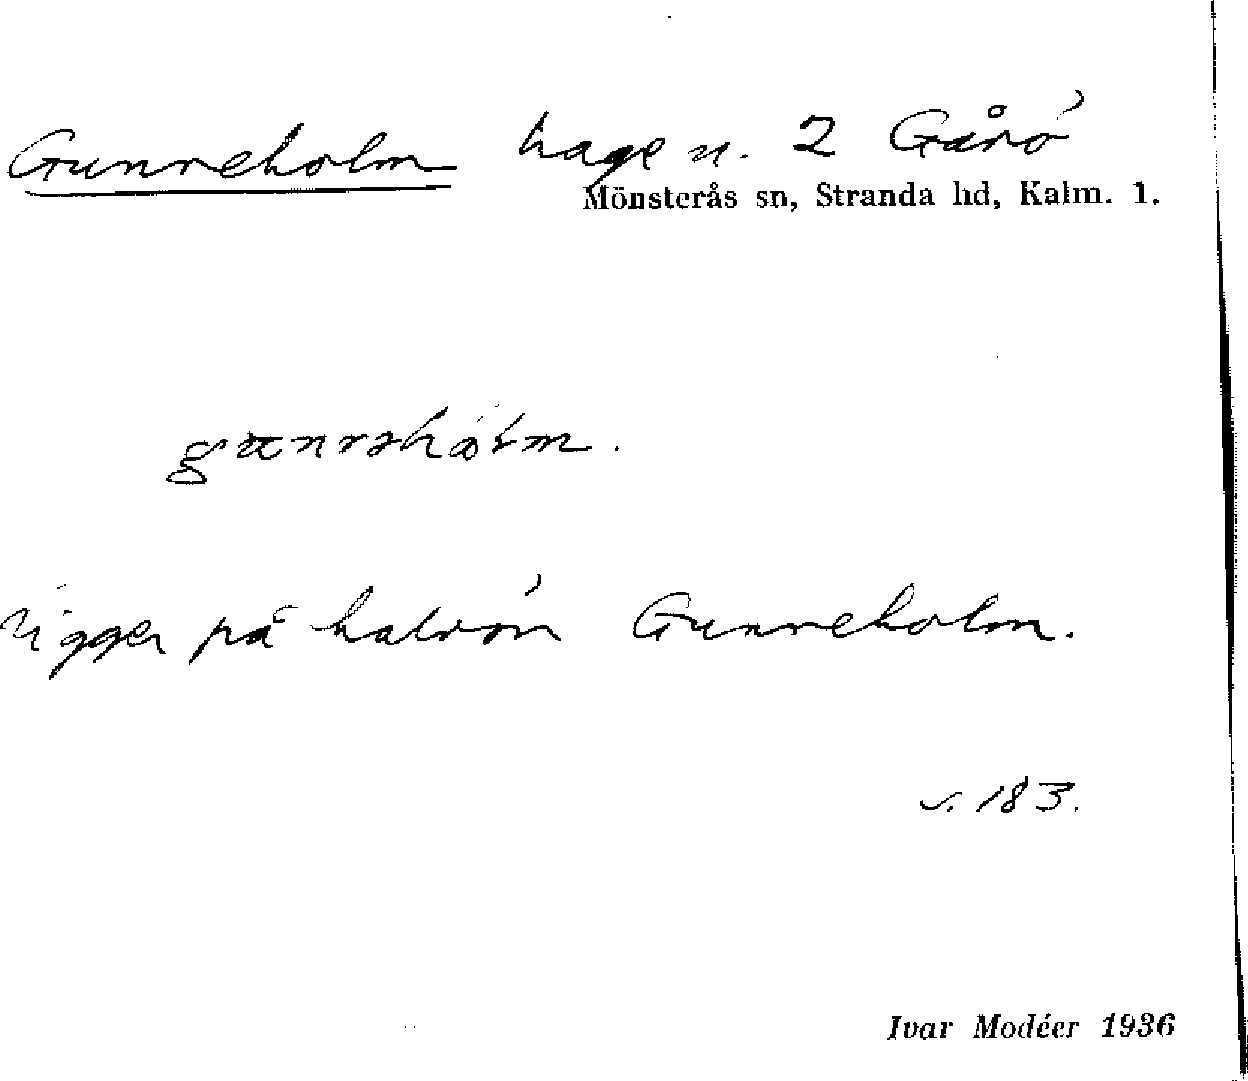 Gunneholm hage n. 2 Gårö
Mönsterås sn, Stranda hd, Kalm. l.
ligger på halvön Gunneholm.
s. 183.
Ivar Modéer 1936